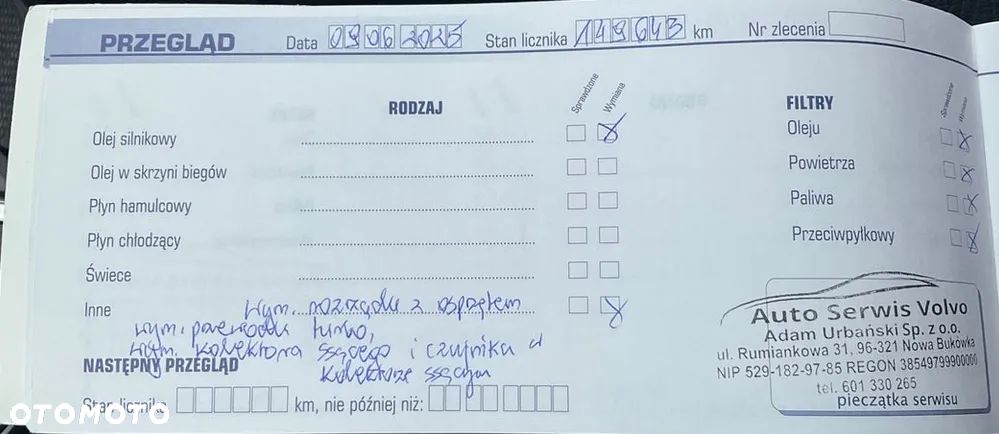 PRZEGLĄD Data 09 06 2025 Stan licznika 149643 km Nr zlecenia
RODZAJ Sprawdzone Wymiana
Olej silnikowy
Olej w skrzyni biegów
Płyn hamulcowy
Płyn chłodzący
Świece
Inne wym. rozrządu z osprzętem
wym. przewodu turbo,
wym. kolektora ssącego i czujnika w
kolektorze ssącym
NASTĘPNY PRZEGLĄD
Stan licznika km, nie później niż:
FILTRY Sprawdzone Wymiana
Oleju
Powietrza
Paliwa
Przeciwpyłkowy
Auto Serwis Volvo
Adam Urbański Sp. z o.o.
ul. Rumiankowa 31, 96-321 Nowa Bukówka
NIP 529-182-97-85 REGON 38549799900000
tel. 601 330 265
pieczątka serwisu
OTOMOTO